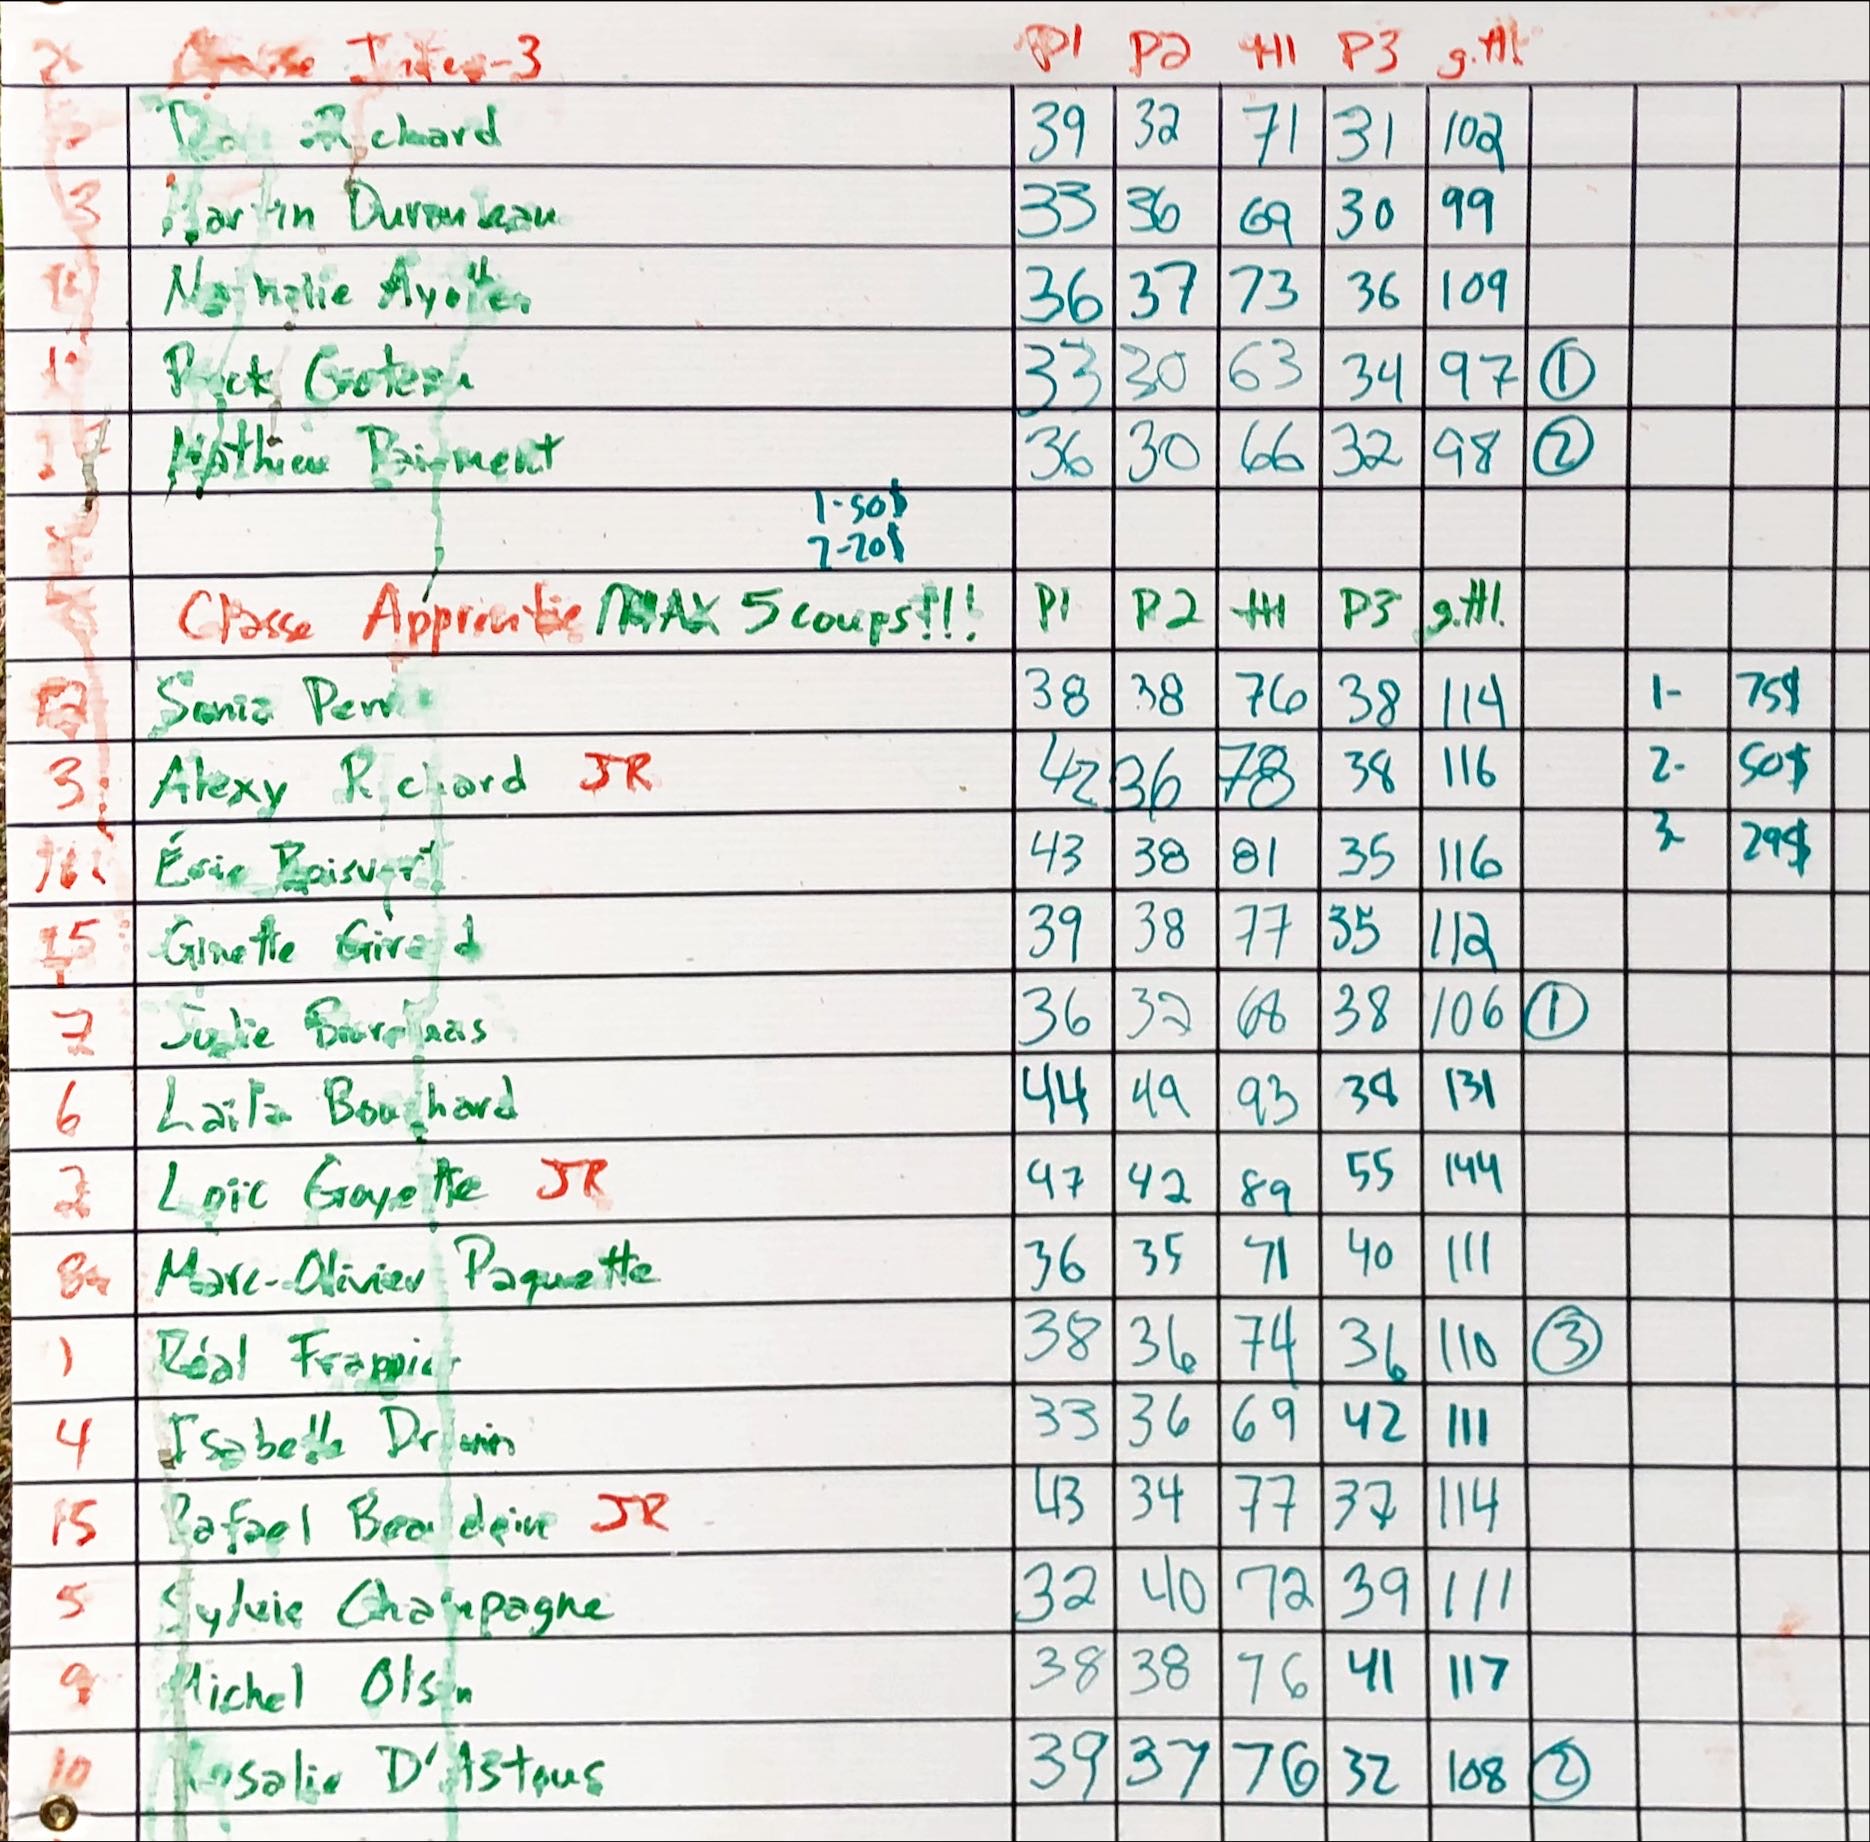 Classe Inter-3 P1 P2 ttl P3 g.ttl
Richard 39 32 71 31 102
3 Martin 33 36 69 30 99
Nathalie Ayotte 36 37 73 36 109
33 30 63 34 97 1
Mathieu 36 30 66 32 98 2
1-50$
2-20$
Classe Apprentie MAX 5 coups!!! P1 P2 ttl P3 g.ttl.
12 Sonia 38 38 76 38 114 1- 75$
3 Alexy Richard JR 42 36 78 38 116 2- 50$
Éric Boisvert 43 38 81 35 116 3- 29$
15 Ginette Girard 39 38 77 35 112
7 Julie 36 32 68 38 106 1
6 Laila Bouchard 44 49 93 38 131
2 Loïc Goyette JR 47 42 89 55 144
8 Marc-Olivier Paquette 36 35 71 40 111
1 Réal Frappier 38 36 74 36 110 3
4 Isabelle Drouin 33 36 69 42 111
15 Rafael Beaudoin JR 43 34 77 37 114
5 Sylvie Champagne 32 40 72 39 111
9 Michel Olsen 38 38 76 41 117
10 Rosalie D'Astous 39 37 76 32 108 2